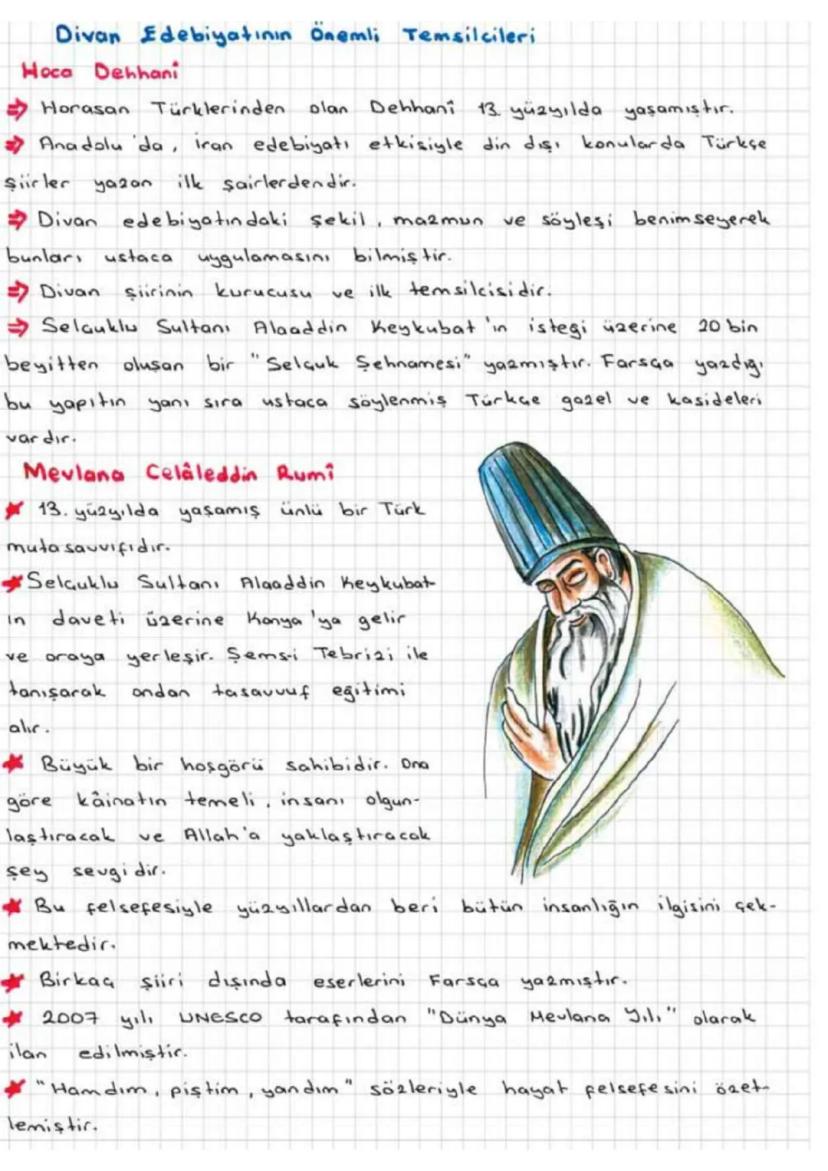 Divan Edebiyatının Önemli Temsilcileri
Hoca Dehhanî
⇒ Horasan Türklerinden olan Dehhanî 13. yüzyılda yaşamıştır.
⇒ Anadolu'da, İran edebiyatı etkisiyle din dışı konularda Türkçe
şiirler yazan ilk şairlerdendir.
⇒ Divan edebiyatındaki şekil, mazmun ve söyleşi benimseyerek
bunları ustaca uygulamasını bilmiştir.
⇒ Divan şiirinin kurucusu ve ilk temsilcisidir.
⇒ Selçuklu Sultanı Alaaddin Keykubat'ın isteği üzerine 20 bin
beyitten oluşan bir "Selçuk Şehnamesi" yazmıştır. Farsça yazdığı
bu yapıtın yanı sıra ustaca söylenmiş Türkçe gazel ve kasideleri
vardır.
Mevlana Celâleddin Rumî
★ 13. yüzyılda yaşamış ünlü bir Türk
mutasavvıfıdır.
★ Selçuklu Sultanı Alaaddin Keykubat-
ın daveti üzerine Konya'ya gelir
ve oraya yerleşir. Şems-i Tebrizi ile
tanışarak ondan tasavvuf eğitimi
alır.
★ Büyük bir hoşgörü sahibidir. Ona
göre kâinatın temeli, insanı olgun-
laştıracak ve Allah'a yaklaştıracak
şey sevgidir.
★ Bu felsefesiyle yüzyıllardan beri bütün insanlığın ilgisini çek-
mektedir.
★ Birkaç şiiri dışında eserlerini Farsça yazmıştır.
★ 2007 yılı UNESCO tarafından "Dünya Mevlana Yılı" olarak
ilan edilmiştir.
★ "Hamdım, piştim, yandım" sözleriyle hayat felsefesini özet-
lemiştir.